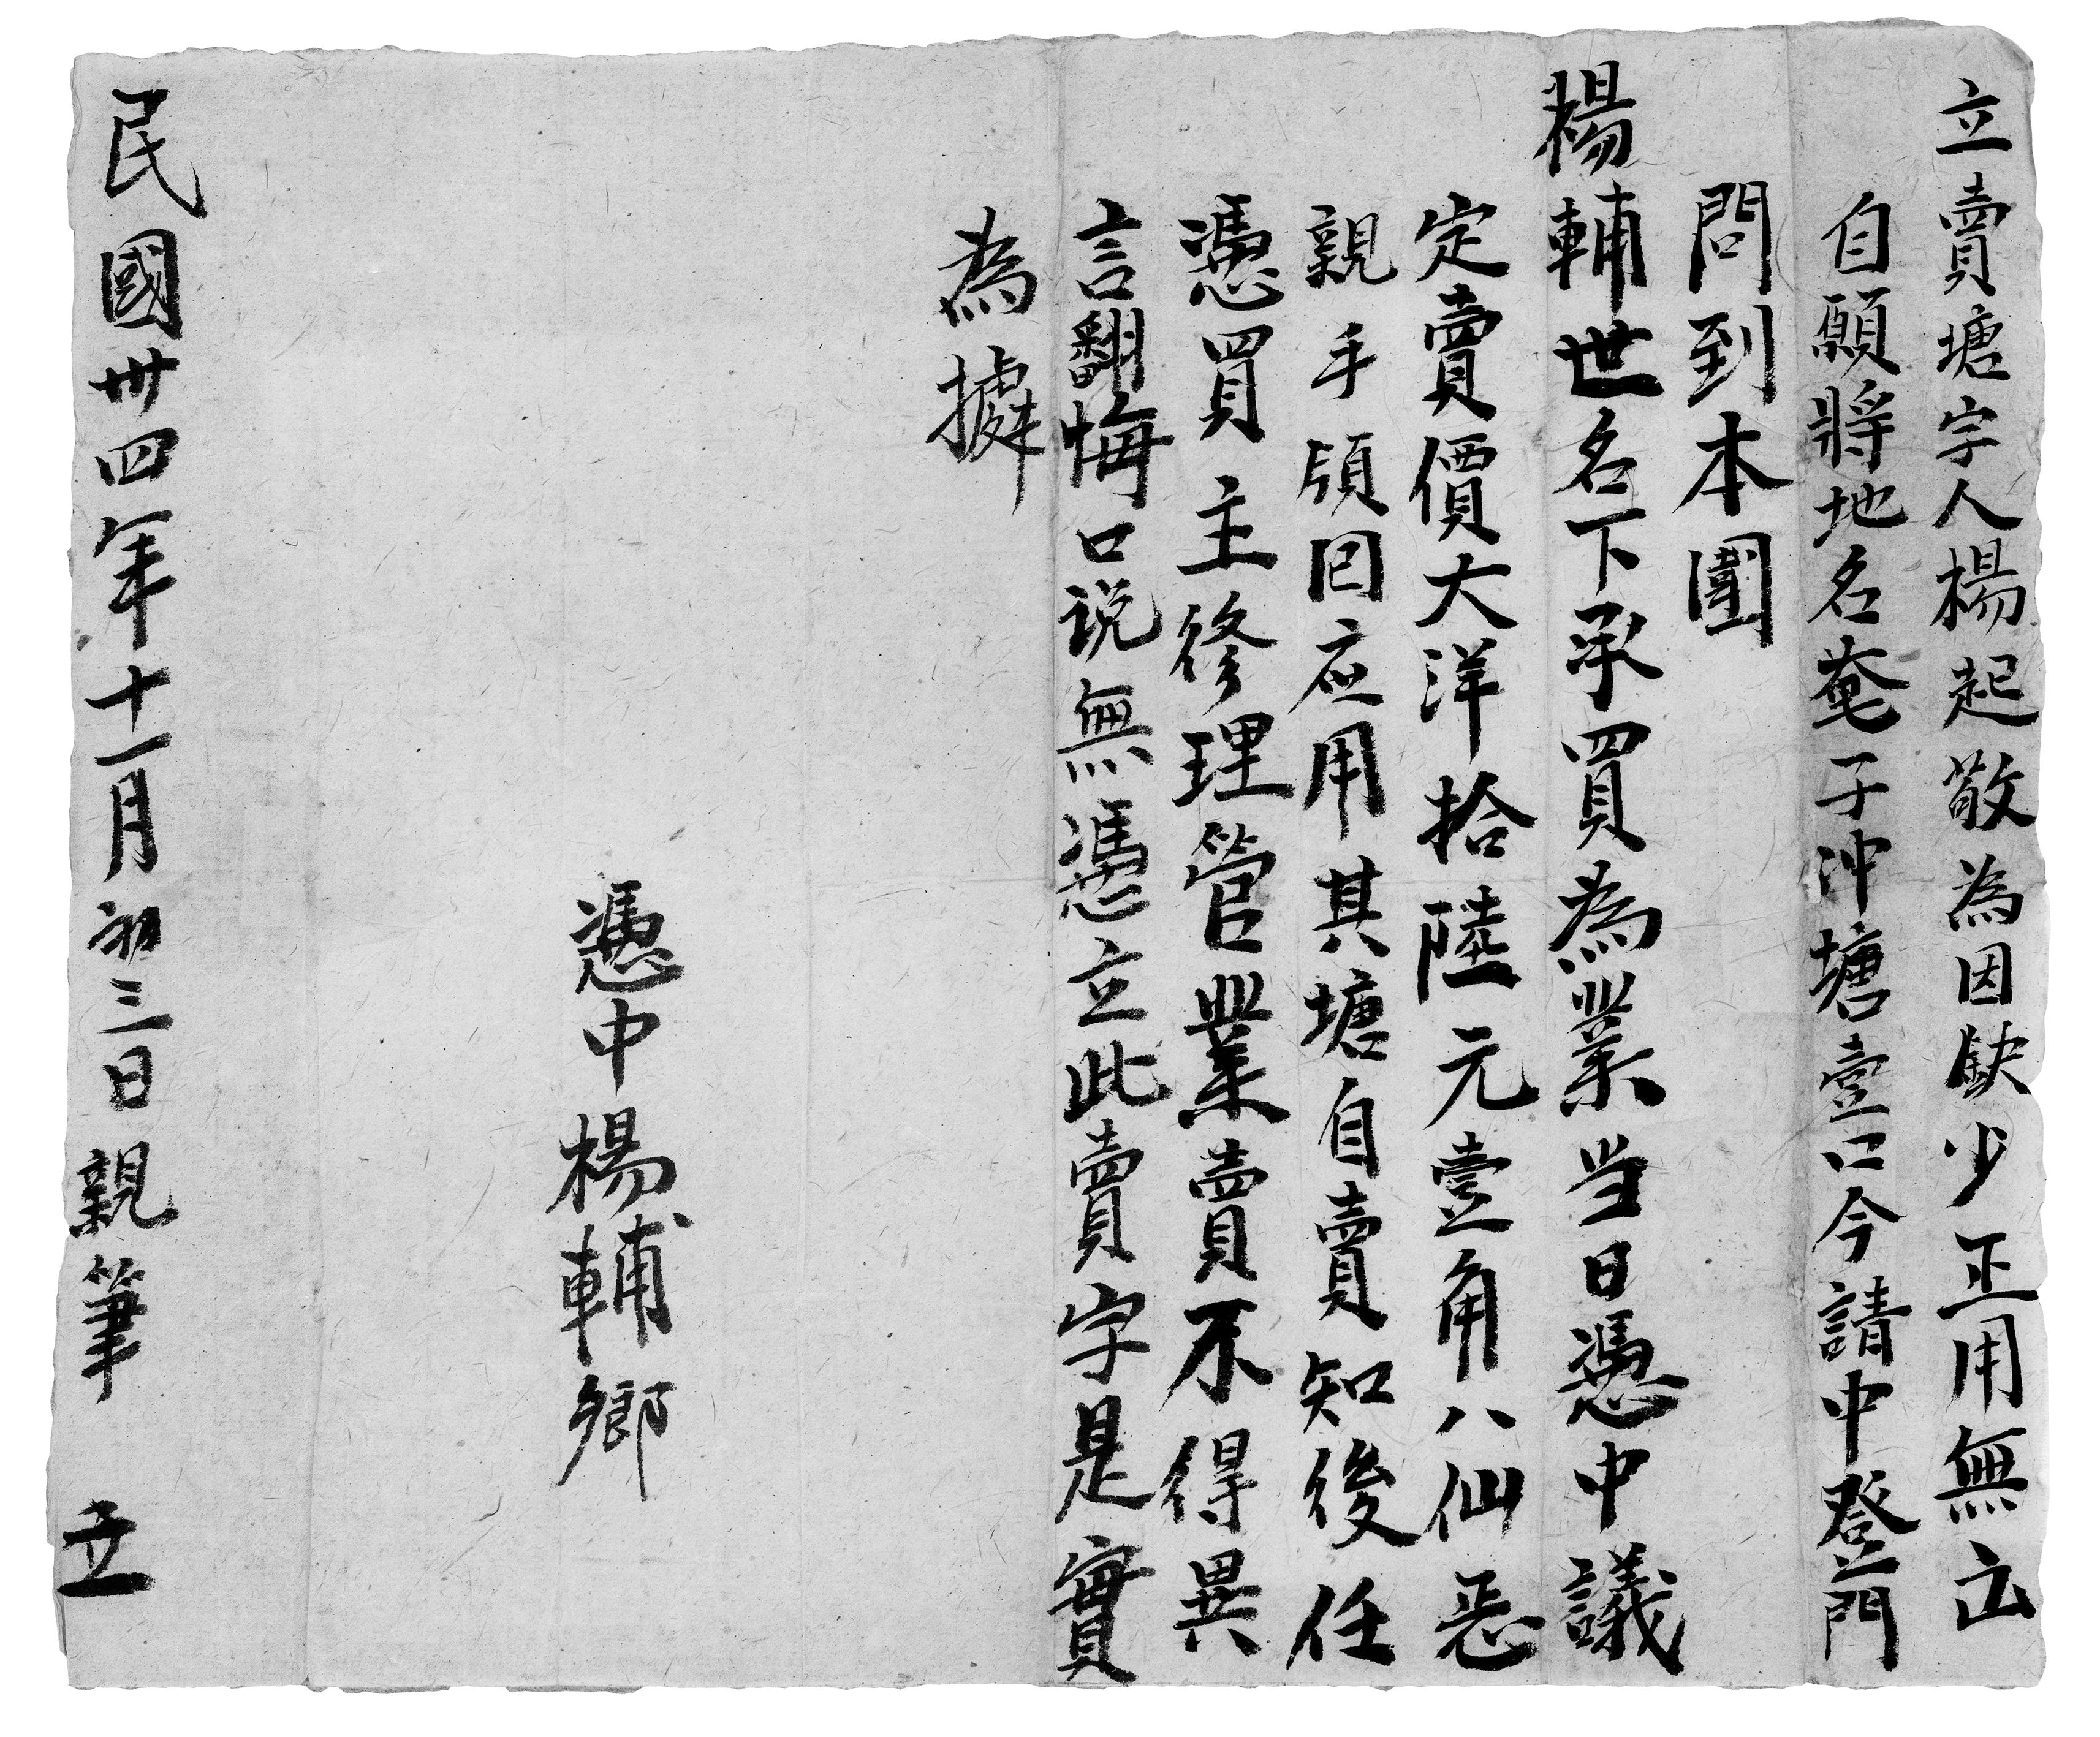 立賣塘字人楊起敬為因缺少正用無出
自願將地名菴子沖塘壹口今請中登門
問到本團
楊輔世名下承買為業当日憑中議
定賣價大洋拾陸元壹角八仙恶
親手領回应用其塘自賣知後任
憑買主修理管業賣不得異
言翻悔口说無憑立此賣字是實
為據
憑中楊輔鄉
民國卅四年十一月初三日親筆 立